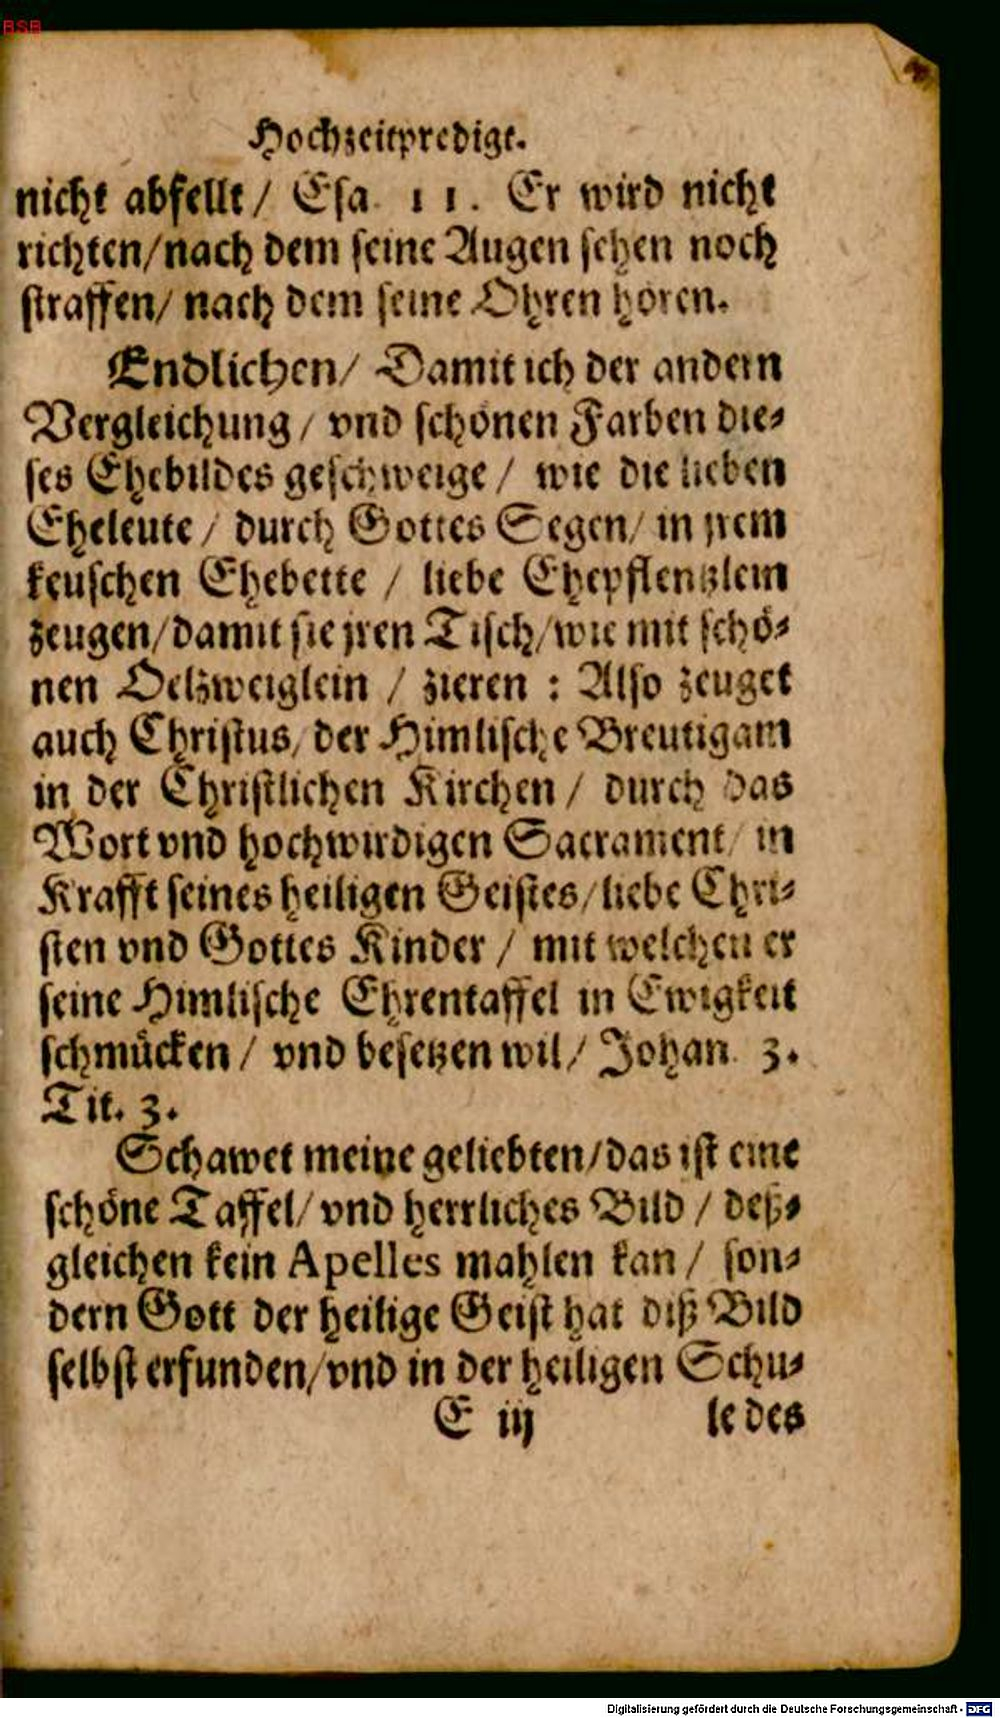 BSB
Hochzeitpredigt.
nicht abfellt / Esa. 11. Er wird nicht
richten/nach dem seine Augen sehen noch
straffen/ nach dem seine Ohren hören.
Endlichen/ Damit ich der andern
Vergleichung / vnd schönen Farben die⸗
ses Ehebildes geschweige / wie die lieben
Eheleute / durch Gottes Segen/ in jrem
keuschen Ehebette / liebe Ehepflentzlein
zeugen/damit sie jren Tisch/wie mit schö⸗
nen Oelzweiglein / zieren : Also zeuget
auch Christus/ der Himlische Breutigam
in der Christlichen Kirchen / durch das
Wort vnd hochwirdigen Sacrament/ in
Krafft seines heiligen Geistes/liebe Chri⸗
sten vnd Gottes Kinder / mit welchen er
seine Himlische Ehrentaffel in Ewigkeit
schmücken / vnd besetzen wil/ Johan. 3.
Tit. 3.
Schawet meine geliebten/das ist eine
schöne Taffel/ vnd herrliches Bild / deß⸗
gleichen kein Apelles mahlen kan / son⸗
dern Gott der heilige Geist hat diß Bild
selbst erfunden/vnd in der heiligen Schu⸗
E iij le des
Digitalisierung gefördert durch die Deutsche Forschungsgemeinschaft - DFG